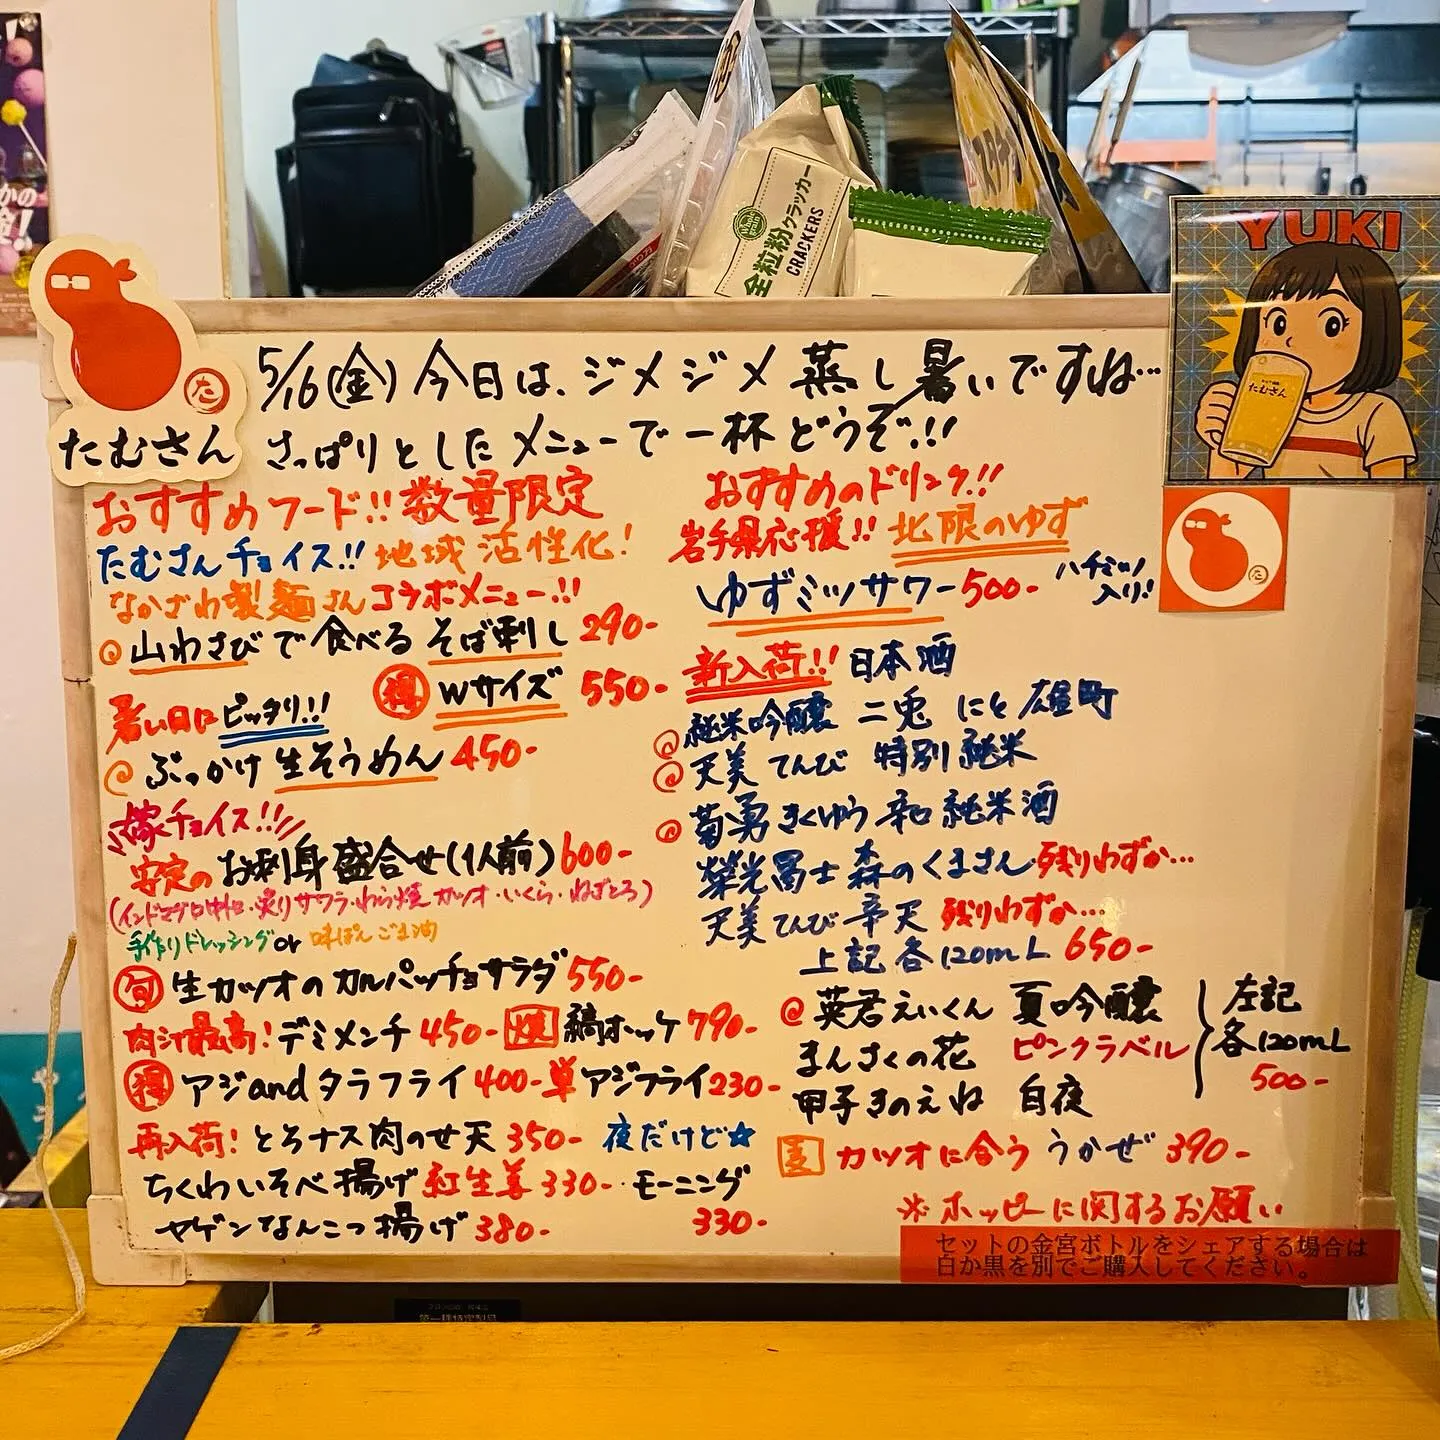 全粒粉クラッカー
CRACKERS
YUKI
たむさん
た
たむさん
5/16(金)今日は、ジメジメ蒸し暑いですね…
さっぱりとしたメニューで一杯どうぞ!!
おすすめフード!!数量限定
たむさんチョイス!!地域活性化!
なかざわ製麺さんコラボメニュー!!
山わさびで食べるそば刺し 290-
得 Wサイズ 550-
暑い日にピッタリ!!
ぶっかけ生そうめん 450-
嫁チョイス!!
安定のお刺身盛合せ(1人前)600-
(インドマグロ中トロ・炙りサワラ・わら焼カツオ・いくら・ねぎとろ)
手作りドレッシング or 味ぽんごま油
旬 生カツオのカルパッチョサラダ 550-
肉汁最高!デミメンチ 450- 焼 縞ホッケ 790-
得 アジandタラフライ 400- 単アジフライ 230-
再入荷!とろナス肉のせ天 350- 夜だけど☆
ちくわいそべ揚げ紅生姜 330- モーニング
ヤゲンなんこつ揚げ 380- 330-
おすすめのドリンク!!
岩手県応援!!北限のゆず
ゆずミツサワー 500- ハチミツ入り!
新入荷!!日本酒
純米吟醸 二兎 にと 雄町
天美 てんび 特別純米
菊勇 きくゆう 辛和 純米酒
榮光冨士 森のくまさん 残りわずか…
天美 てんび 辛天 残りわずか…
上記各120mL 650-
英君えいくん 夏吟醸
まんさくの花 ピンクラベル
甲子きのえね 白夜
左記
各120mL
500-
麦 カツオに合う うかぜ 390-
※ホッピーに関するお願い
セットの金宮ボトルをシェアする場合は
白か黒を別でご購入してください。